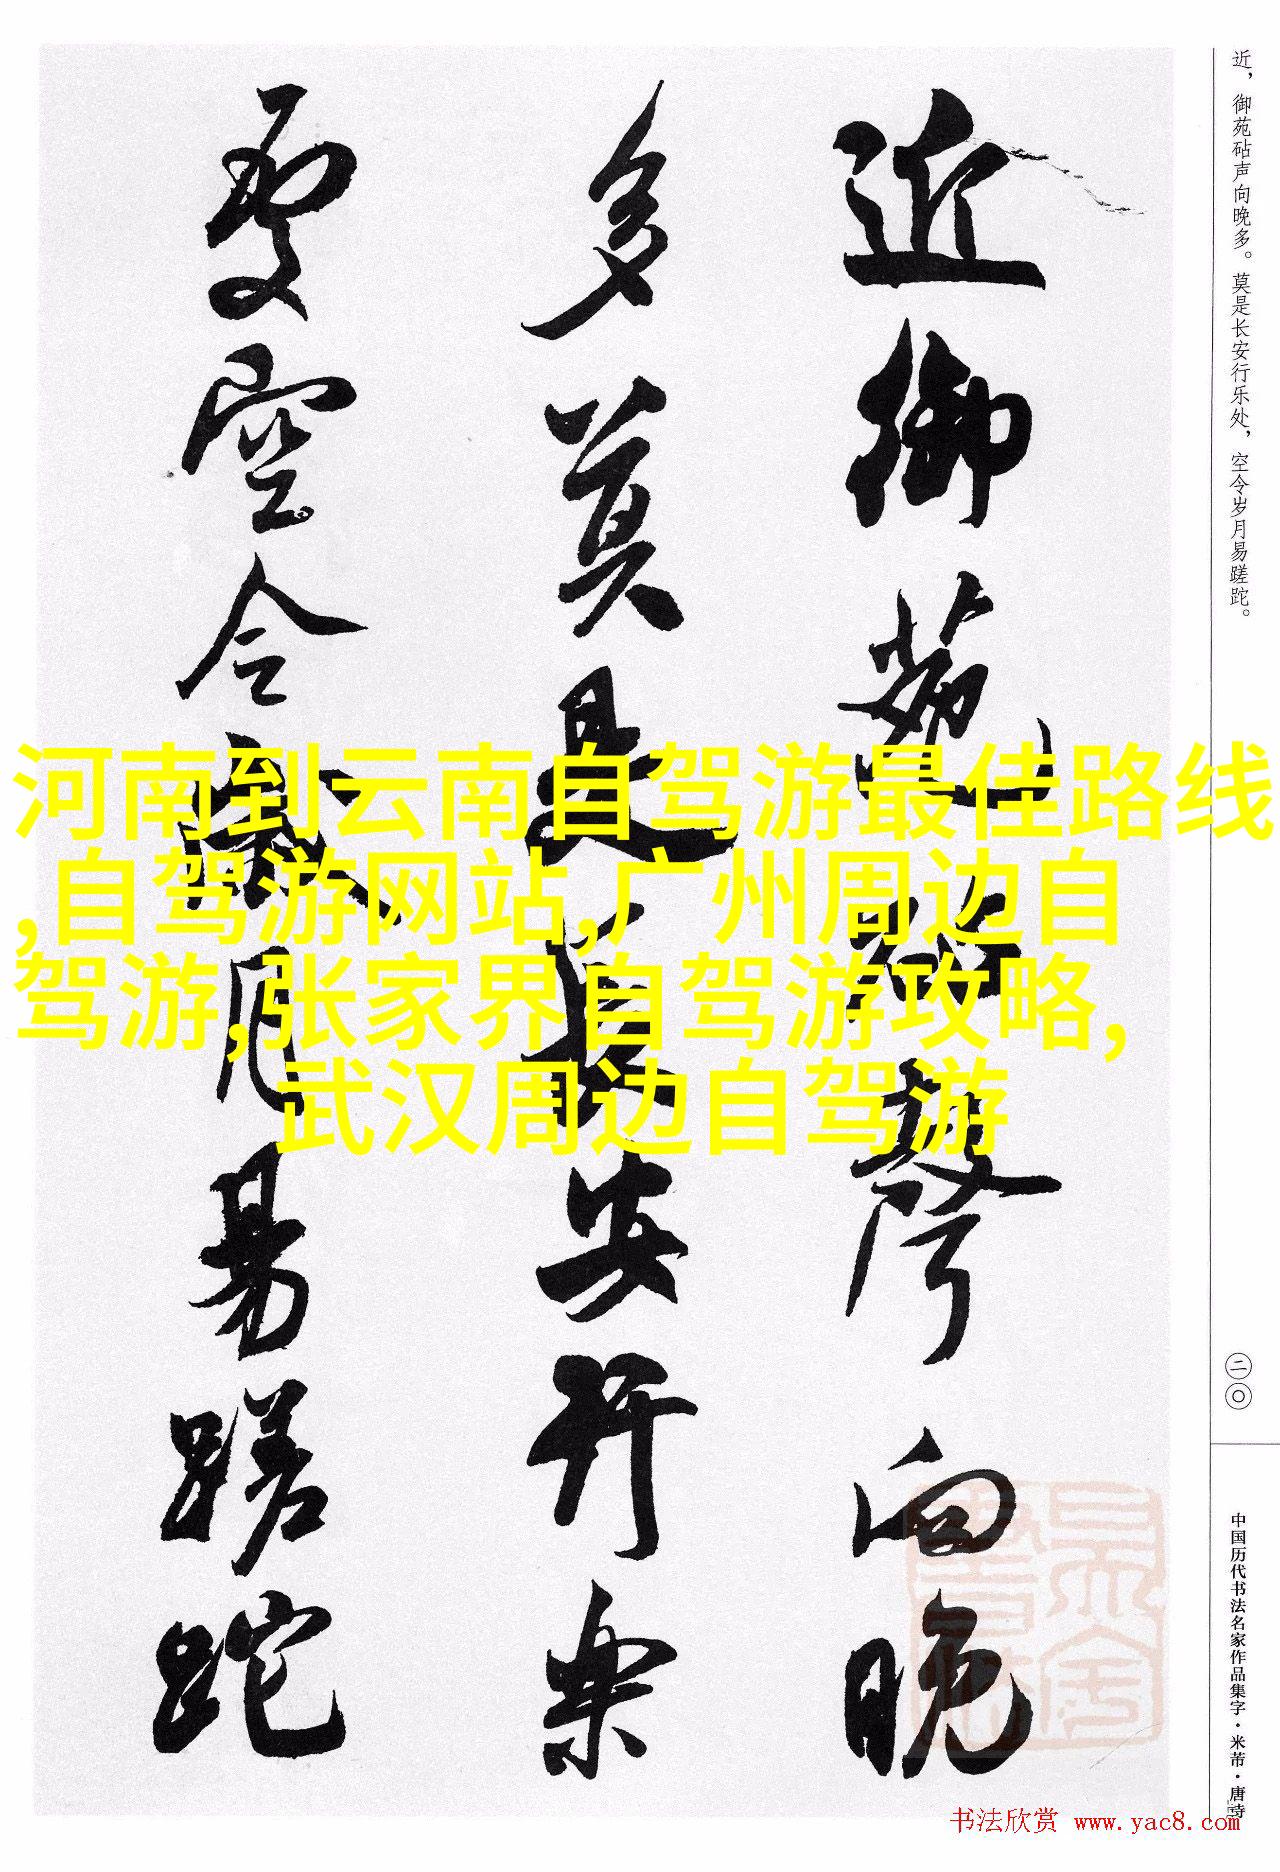 近，御苑砧声向晚多。莫是长安行乐处，空令岁月易蹉跎。
近御苑砧聲向晚
多莫是長安行樂
處空令歲月易蹉跎
河南到云南自驾游最佳路线
,自驾游网站,广州周边自
驾游,张家界自驾游攻略,
武汉周边自驾游
二〇
中国历代书法名家作品集字·米芾·唐诗
书法欣赏 www.yac8.com